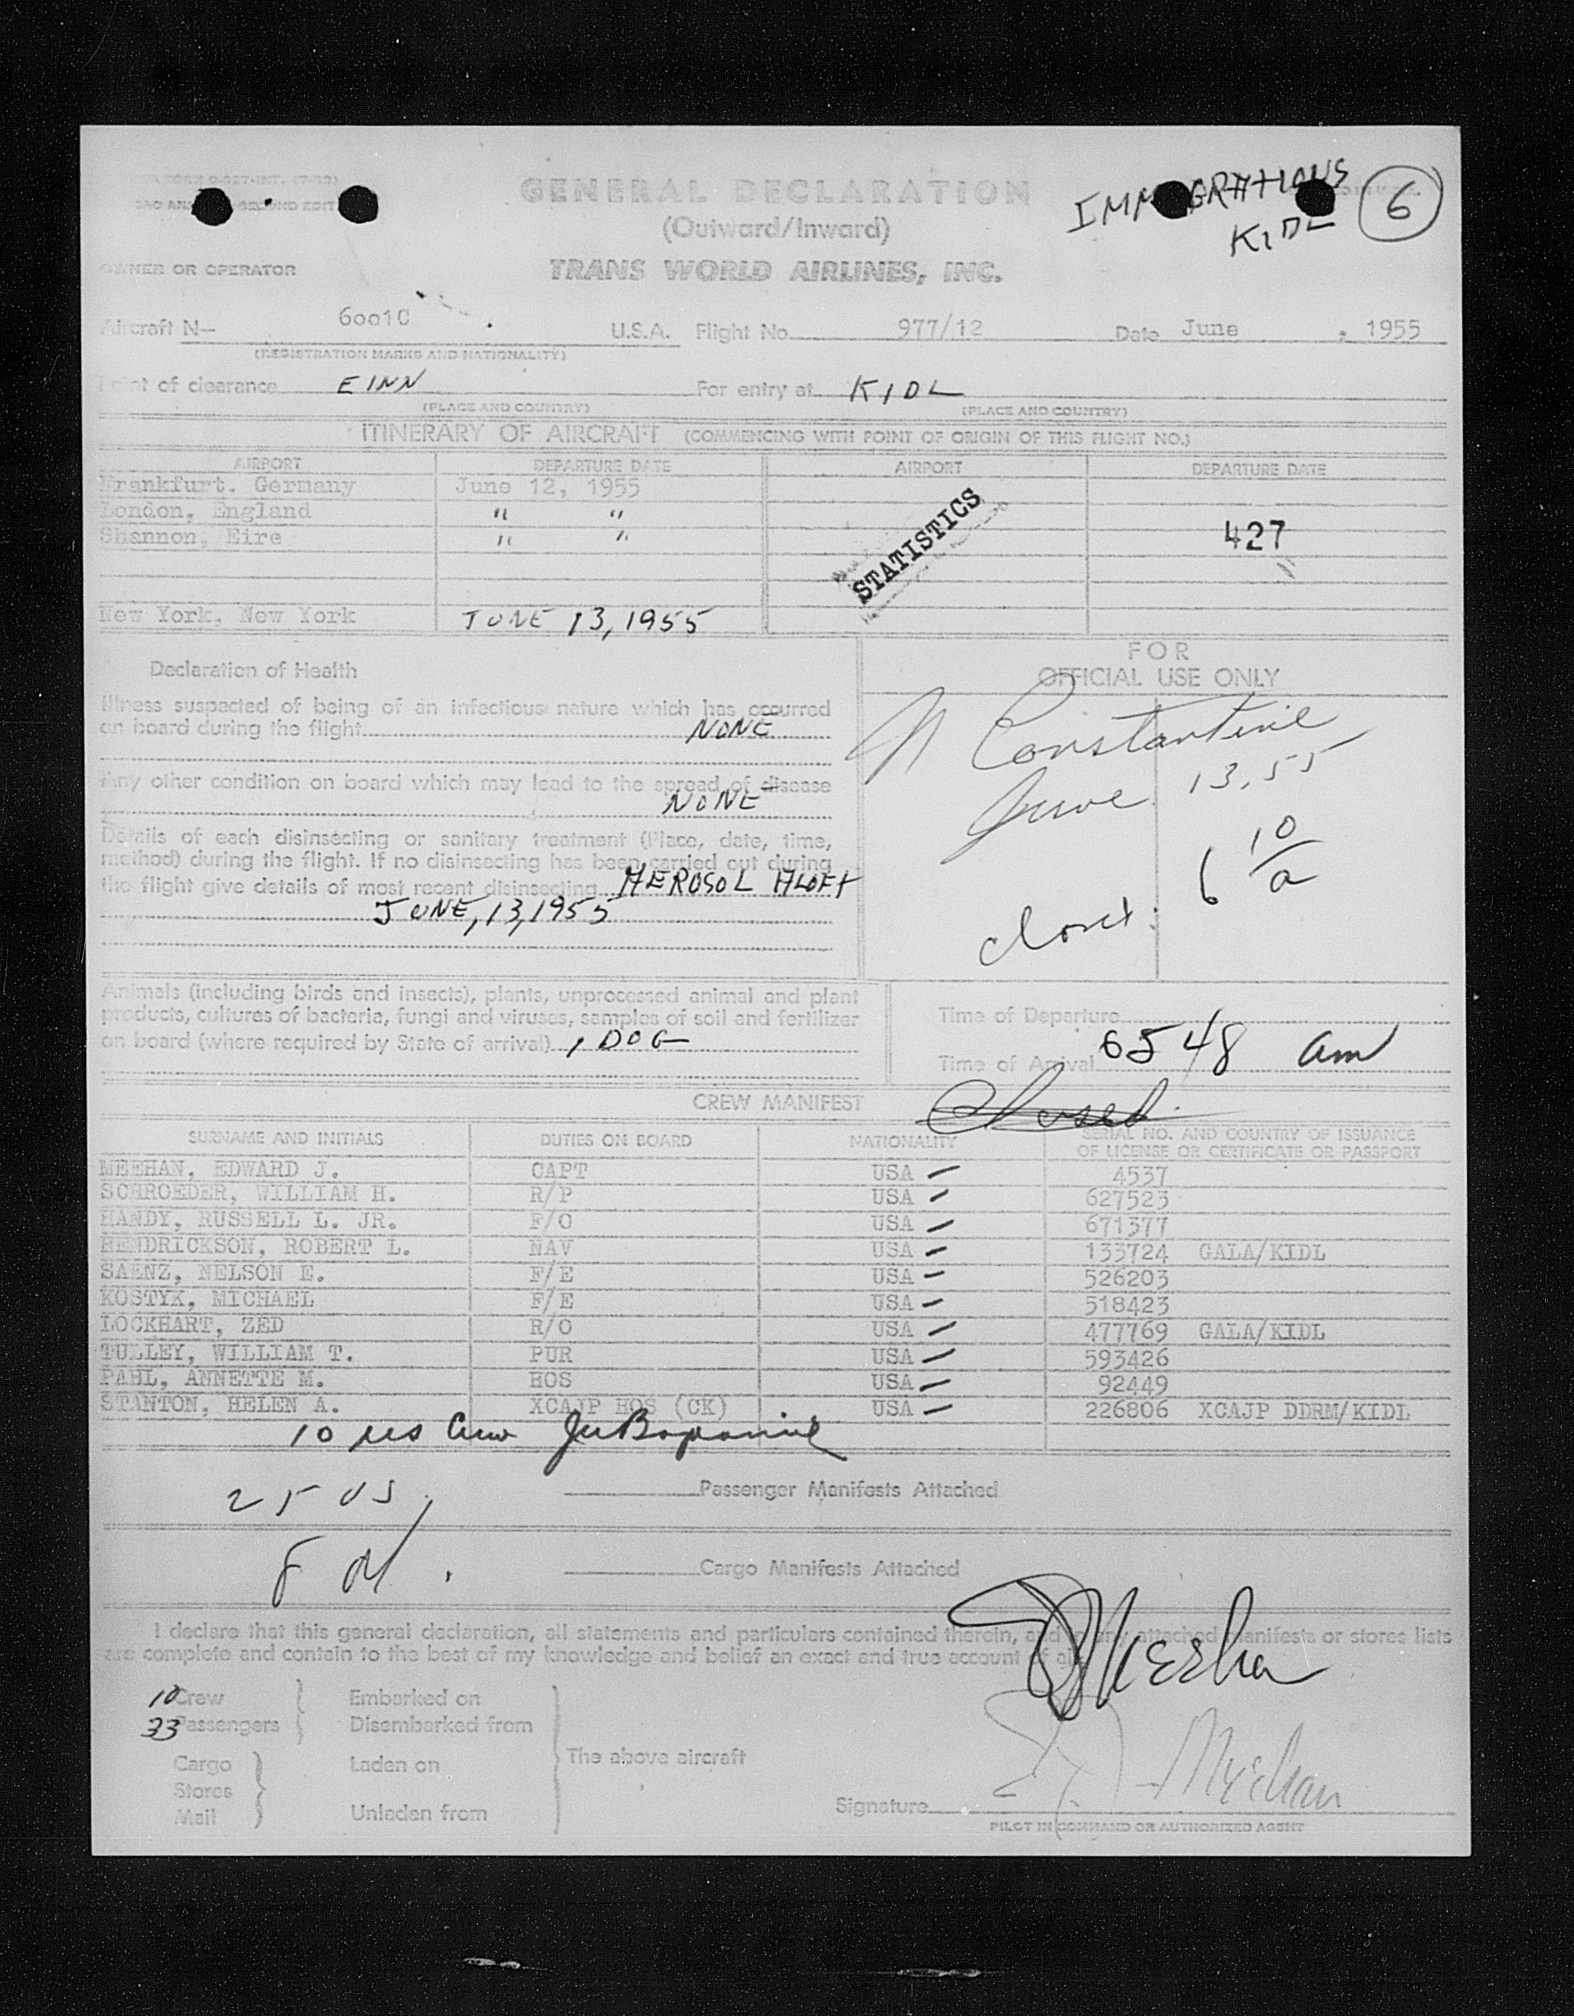 GENERAL DECLARATION
(Outward/Inward)
IMMIGRATIONS
KIDL
6
OWNER OR OPERATOR
TRANS WORLD AIRLINES, INC.
Aircraft N— 6001C U.S.A. Flight No. 977/12 Date June , 1955
(REGISTRATION MARKS AND NATIONALITY)
Point of clearance EINN For entry at KIDL
(PLACE AND COUNTRY) (PLACE AND COUNTRY)
ITINERARY OF AIRCRAFT (COMMENCING WITH POINT OF ORIGIN OF THIS FLIGHT NO.)
AIRPORT DEPARTURE DATE AIRPORT DEPARTURE DATE
Frankfurt. Germany June 12, 1955
London, England " "
Shannon, Eire " "
STATISTICS
427
New York, New York JUNE 13, 1955
Declaration of Health
Illness suspected of being of an infectious nature which has occurred
on board during the flight NONE
Any other condition on board which may lead to the spread of disease
NONE
Details of each disinsecting or sanitary treatment (Place, date, time,
method) during the flight. If no disinsecting has been carried out during
the flight give details of most recent disinsecting AEROSOL ALOFT
JUNE, 13, 1955
FOR
OFFICIAL USE ONLY
N Constantine
June 13, 55
6 10/a
closed:
Animals (including birds and insects), plants, unprocessed animal and plant
products, cultures of bacteria, fungi and viruses, samples of soil and fertilizer
on board (where required by State of arrival) 1 DOG
Time of Departure
Time of Arrival 6548 am
Closed
CREW MANIFEST
SURNAME AND INITIALS DUTIES ON BOARD NATIONALITY SERIAL NO. AND COUNTRY OF ISSUANCE
OF LICENSE OR CERTIFICATE OR PASSPORT
MEEHAN, EDWARD J. CAPT USA 4537
SCHROEDER, WILLIAM H. R/P USA 627523
HANDY, RUSSELL L. JR. F/O USA 671377
HENDRICKSON, ROBERT L. NAV USA 133724 GALA/KIDL
SAENZ, NELSON E. F/E USA 526203
KOSTYK, MICHAEL F/E USA 518423
LOCKHART, ZED R/O USA 477769 GALA/KIDL
TULLEY, WILLIAM T. PUR USA 593426
PAHL, ANNETTE M. HOS USA 92449
STANTON, HELEN A. XCAJP HOS (CK) USA 226806 XCAJP DDRM/KIDL
10 US
25 US
Passenger Manifests Attached
8
Cargo Manifests Attached
I declare that this general declaration, all statements and particulars contained therein, and in any attached manifests or stores lists
are complete and contain to the best of my knowledge and belief an exact and true account of all
EJ Meehan
10 Crew Embarked on
33 Passengers Disembarked from
The above aircraft
Cargo Laden on
Stores
Mail Unladen from
Signature EJ Meehan
PILOT IN COMMAND OR AUTHORIZED AGENT